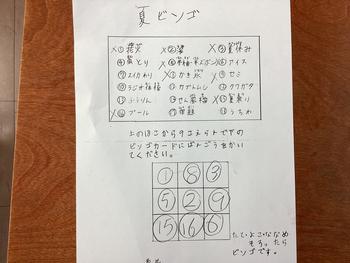 夏ビンゴ
×① 花火 ×② 海 ×③ 夏休み
④ 虫とり ×⑤ ⑥ アイス
⑦ スイカわり ×⑧ かき氷 ×⑨ セミ
⑩ ラジオ体操 ⑪ カブトムシ ⑫ クワガタ
⑬ ふうりん ⑭ せん風機 ×⑮ 夏祭り
×⑯ プール ⑰ ⑱ うちわ
上のはこから9コえらんで下の
ビンゴカードにばんごうをかい
てください。
① ⑧ ③
⑤ ② ⑨
⑮ ⑯ ⑥
たてよこななめ
そろったら
ビンゴです。